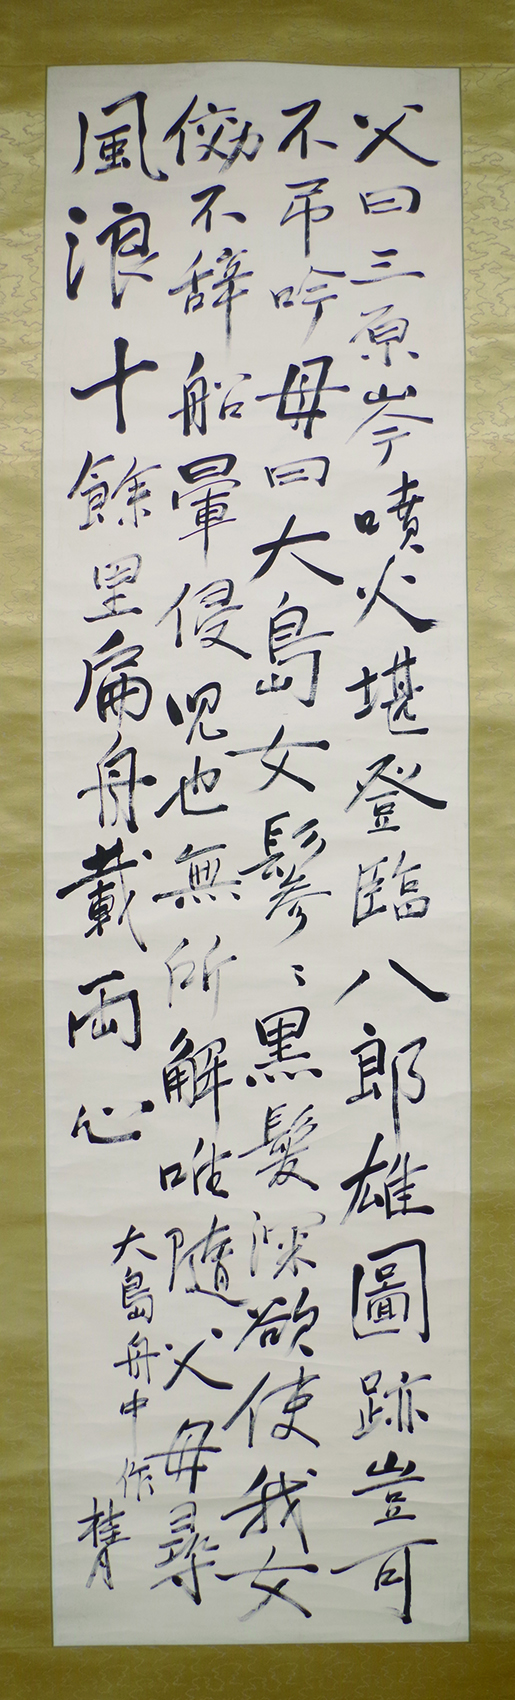 父曰三原岑噴火堪登臨八郎雄圖跡豈可
不吊吟母曰大島女鬖〻黒髮深欲使我女
俲不辞船暈侵児也無所解唯隨父母尋
風浪十餘里扁舟載両心
大島舟中作 桂月